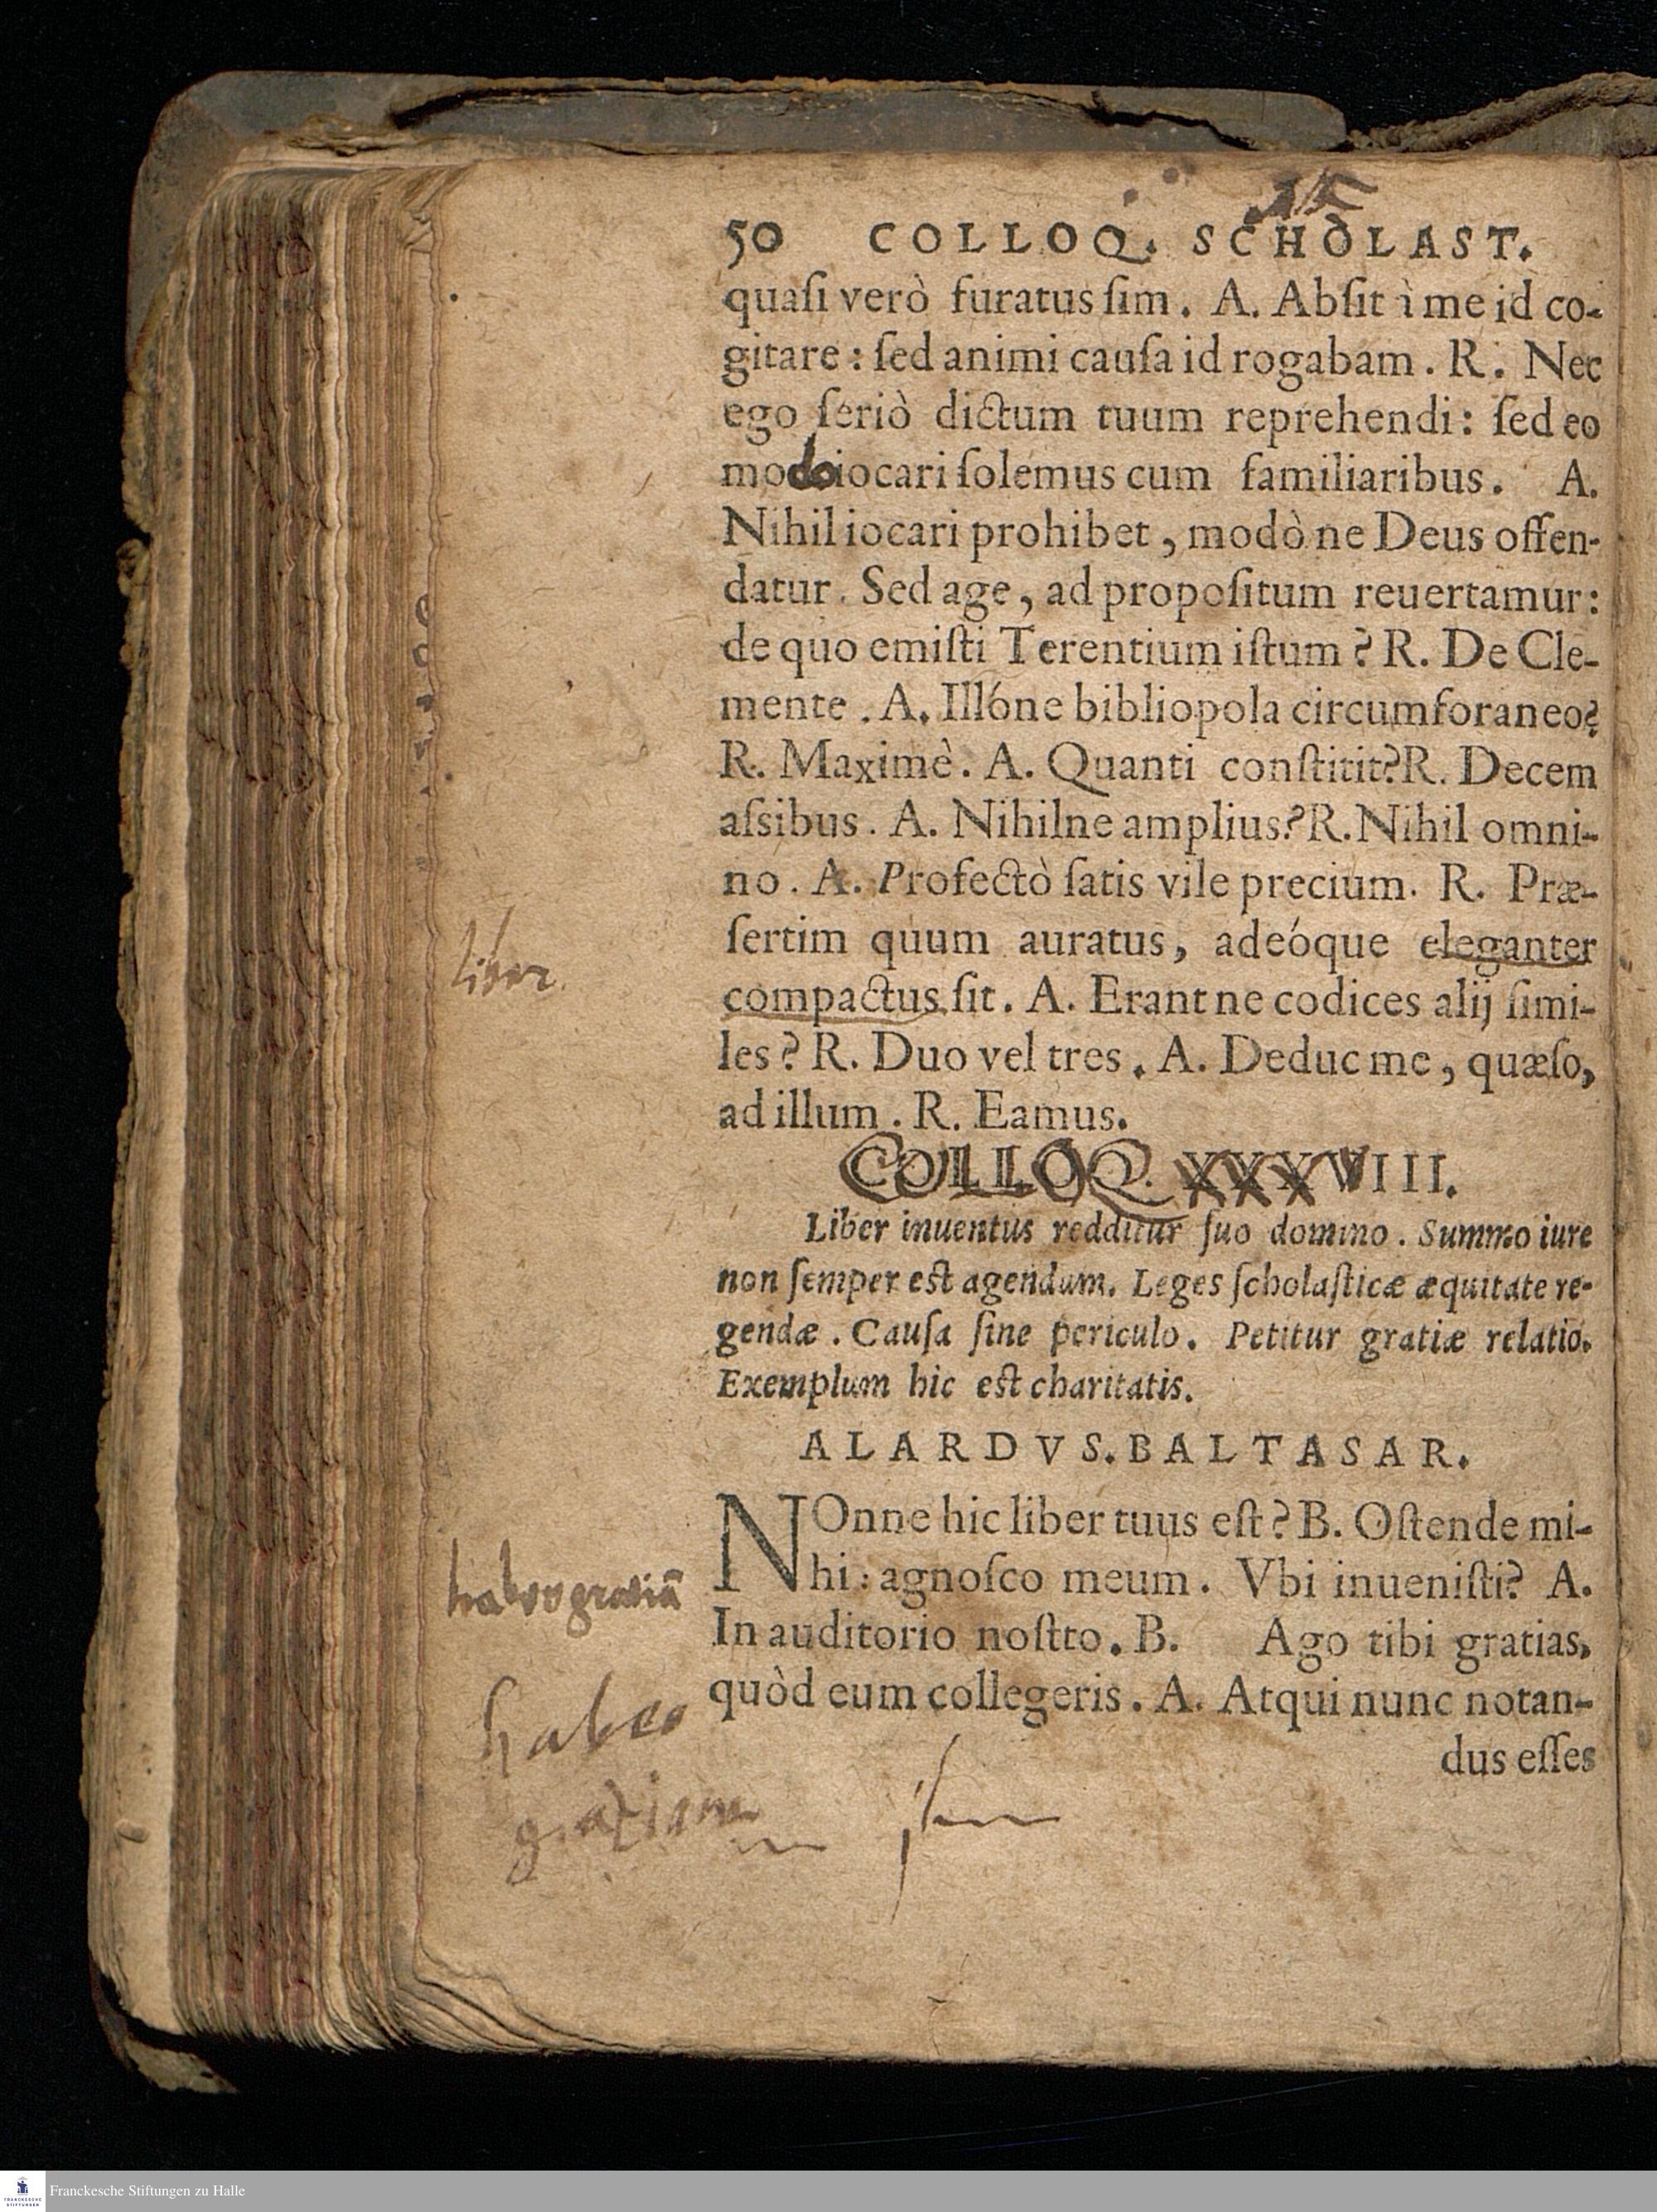 50 COLLOQ. SCHOLAST.
quaſi verò furatus ſim. A. Abſit ì me id co-
gitare: ſed animi cauſa id rogabam. R. Nec
ego ſeriò dictum tuum reprehendi: ſed eo
modo iocari ſolemus cum familiaribus. A.
Nihil iocari prohibet, modò ne Deus offen-
datur. Sed age, ad propoſitum reuertamur:
de quo emiſti Terentium iſtum? R. De Cle-
mente. A. Illóne bibliopola circumforaneo?
R. Maximè. A. Quanti conſtitit? R. Decem
aſsibus. A. Nihilne amplius? R. Nihil omni-
no. A. Profectò ſatis vile precium. R. Præ-
ſertim quum auratus, adeóque eleganter
liber.
compactus ſit. A. Erant ne codices alij ſimi-
les? R. Duo vel tres. A. Deduc me, quæſo,
ad illum. R. Eamus.
COLLOQ. XXXVIII.
Liber inuentus redditur ſuo domino. Summo iure
non ſemper eſt agendum. Leges ſcholaſticæ æquitate re-
gendæ. Cauſa ſine periculo. Petitur gratiæ relatio.
Exemplum hic eſt charitatis.
ALARDVS. BALTASAR.
NOnne hic liber tuus eſt? B. Oſtende mi-
hi: agnoſco meum. Vbi inueniſti? A.
habeo gratiā
In auditorio noſtto. B. Ago tibi gratias,
quòd eum collegeris. A. Atqui nunc notan-
habeo
dus eſſes
gratiam
Franckesche Stiftungen zu Halle
FRANCKESCHE
STIFTUNGEN